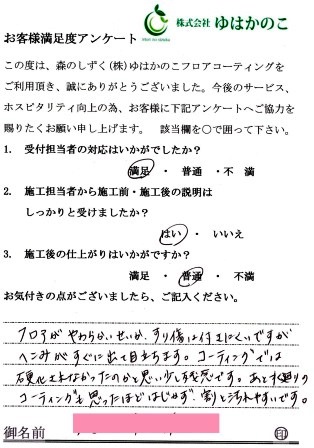 株式会社 ゆはかのこ
お客様満足度アンケート
この度は、森のしずく(株)ゆはかのこフロアコーティングを
ご利用頂き、誠にありがとうございました。今後のサービス、
ホスピタリティ向上の為、お客様に下記アンケートへご協力を
賜りたくお願い申し上げます。 該当欄を○で囲って下さい。
1. 受付担当者の対応はいかがでしたか?
満足 ・ 普通 ・ 不 満
2. 施工担当者から施工前・施工後の説明は
しっかりと受けましたか?
はい ・ いいえ
3. 施工後の仕上がりはいかがですか?
満足 ・ 普通 ・ 不満
お気付きの点がございましたら、ご記入ください。
フロアがやわらかいせいか、すり傷は付きにくいですが
へこみがすぐに出て目立ちます。コーティングでは
硬化しなかったのかと思い少し残念です。あと水廻りの
コーティングも思ったほどはじかず、割と汚れやすいです。
御名前 印